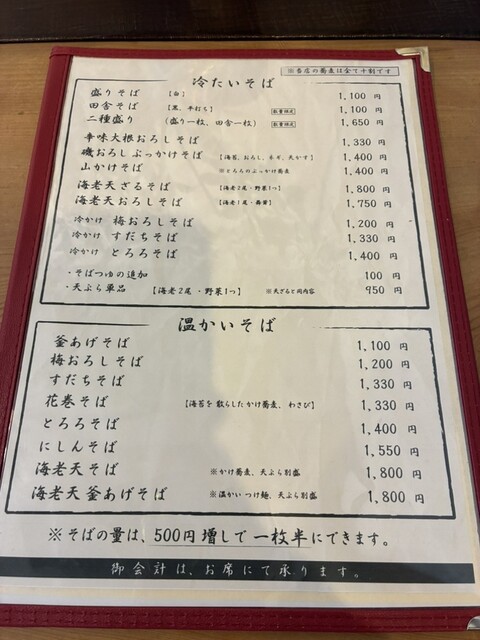 ※当店の蕎麦は全て十割です
冷たいそば
盛りそば 【白】 1,100 円
田舎そば 【黒、平打ち】 数量限定 1,100 円
二種盛り (盛り一枚、田舎一枚) 数量限定 1,650 円
辛味大根おろしそば 1,330 円
磯おろしぶっかけそば 【海苔、おろし、ネギ、天かす】 1,400 円
山かけそば ※とろろのぶっかけ蕎麦 1,400 円
海老天ざるそば 【海老2尾・野菜1つ】 1,800 円
海老天おろしそば 【海老1尾・舞茸】 1,750 円
冷かけ 梅おろしそば 1,200 円
冷かけ すだちそば 1,330 円
冷かけ とろろそば 1,400 円
・そばつゆの追加 100 円
・天ぷら単品 【海老2尾・野菜1つ】 ※天ざると同内容 950 円
温かいそば
釜あげそば 1,100 円
梅おろしそば 1,200 円
すだちそば 1,330 円
花巻そば 【海苔を散らしたかけ蕎麦、わさび】 1,330 円
とろろそば 1,400 円
にしんそば 1,550 円
海老天そば ※かけ蕎麦、天ぷら別盛 1,800 円
海老天釜あげそば ※温かいつけ麺、天ぷら別盛 1,800 円
※そばの量は、500円増しで一枚半にできます。
御会計は、お席にて承ります。